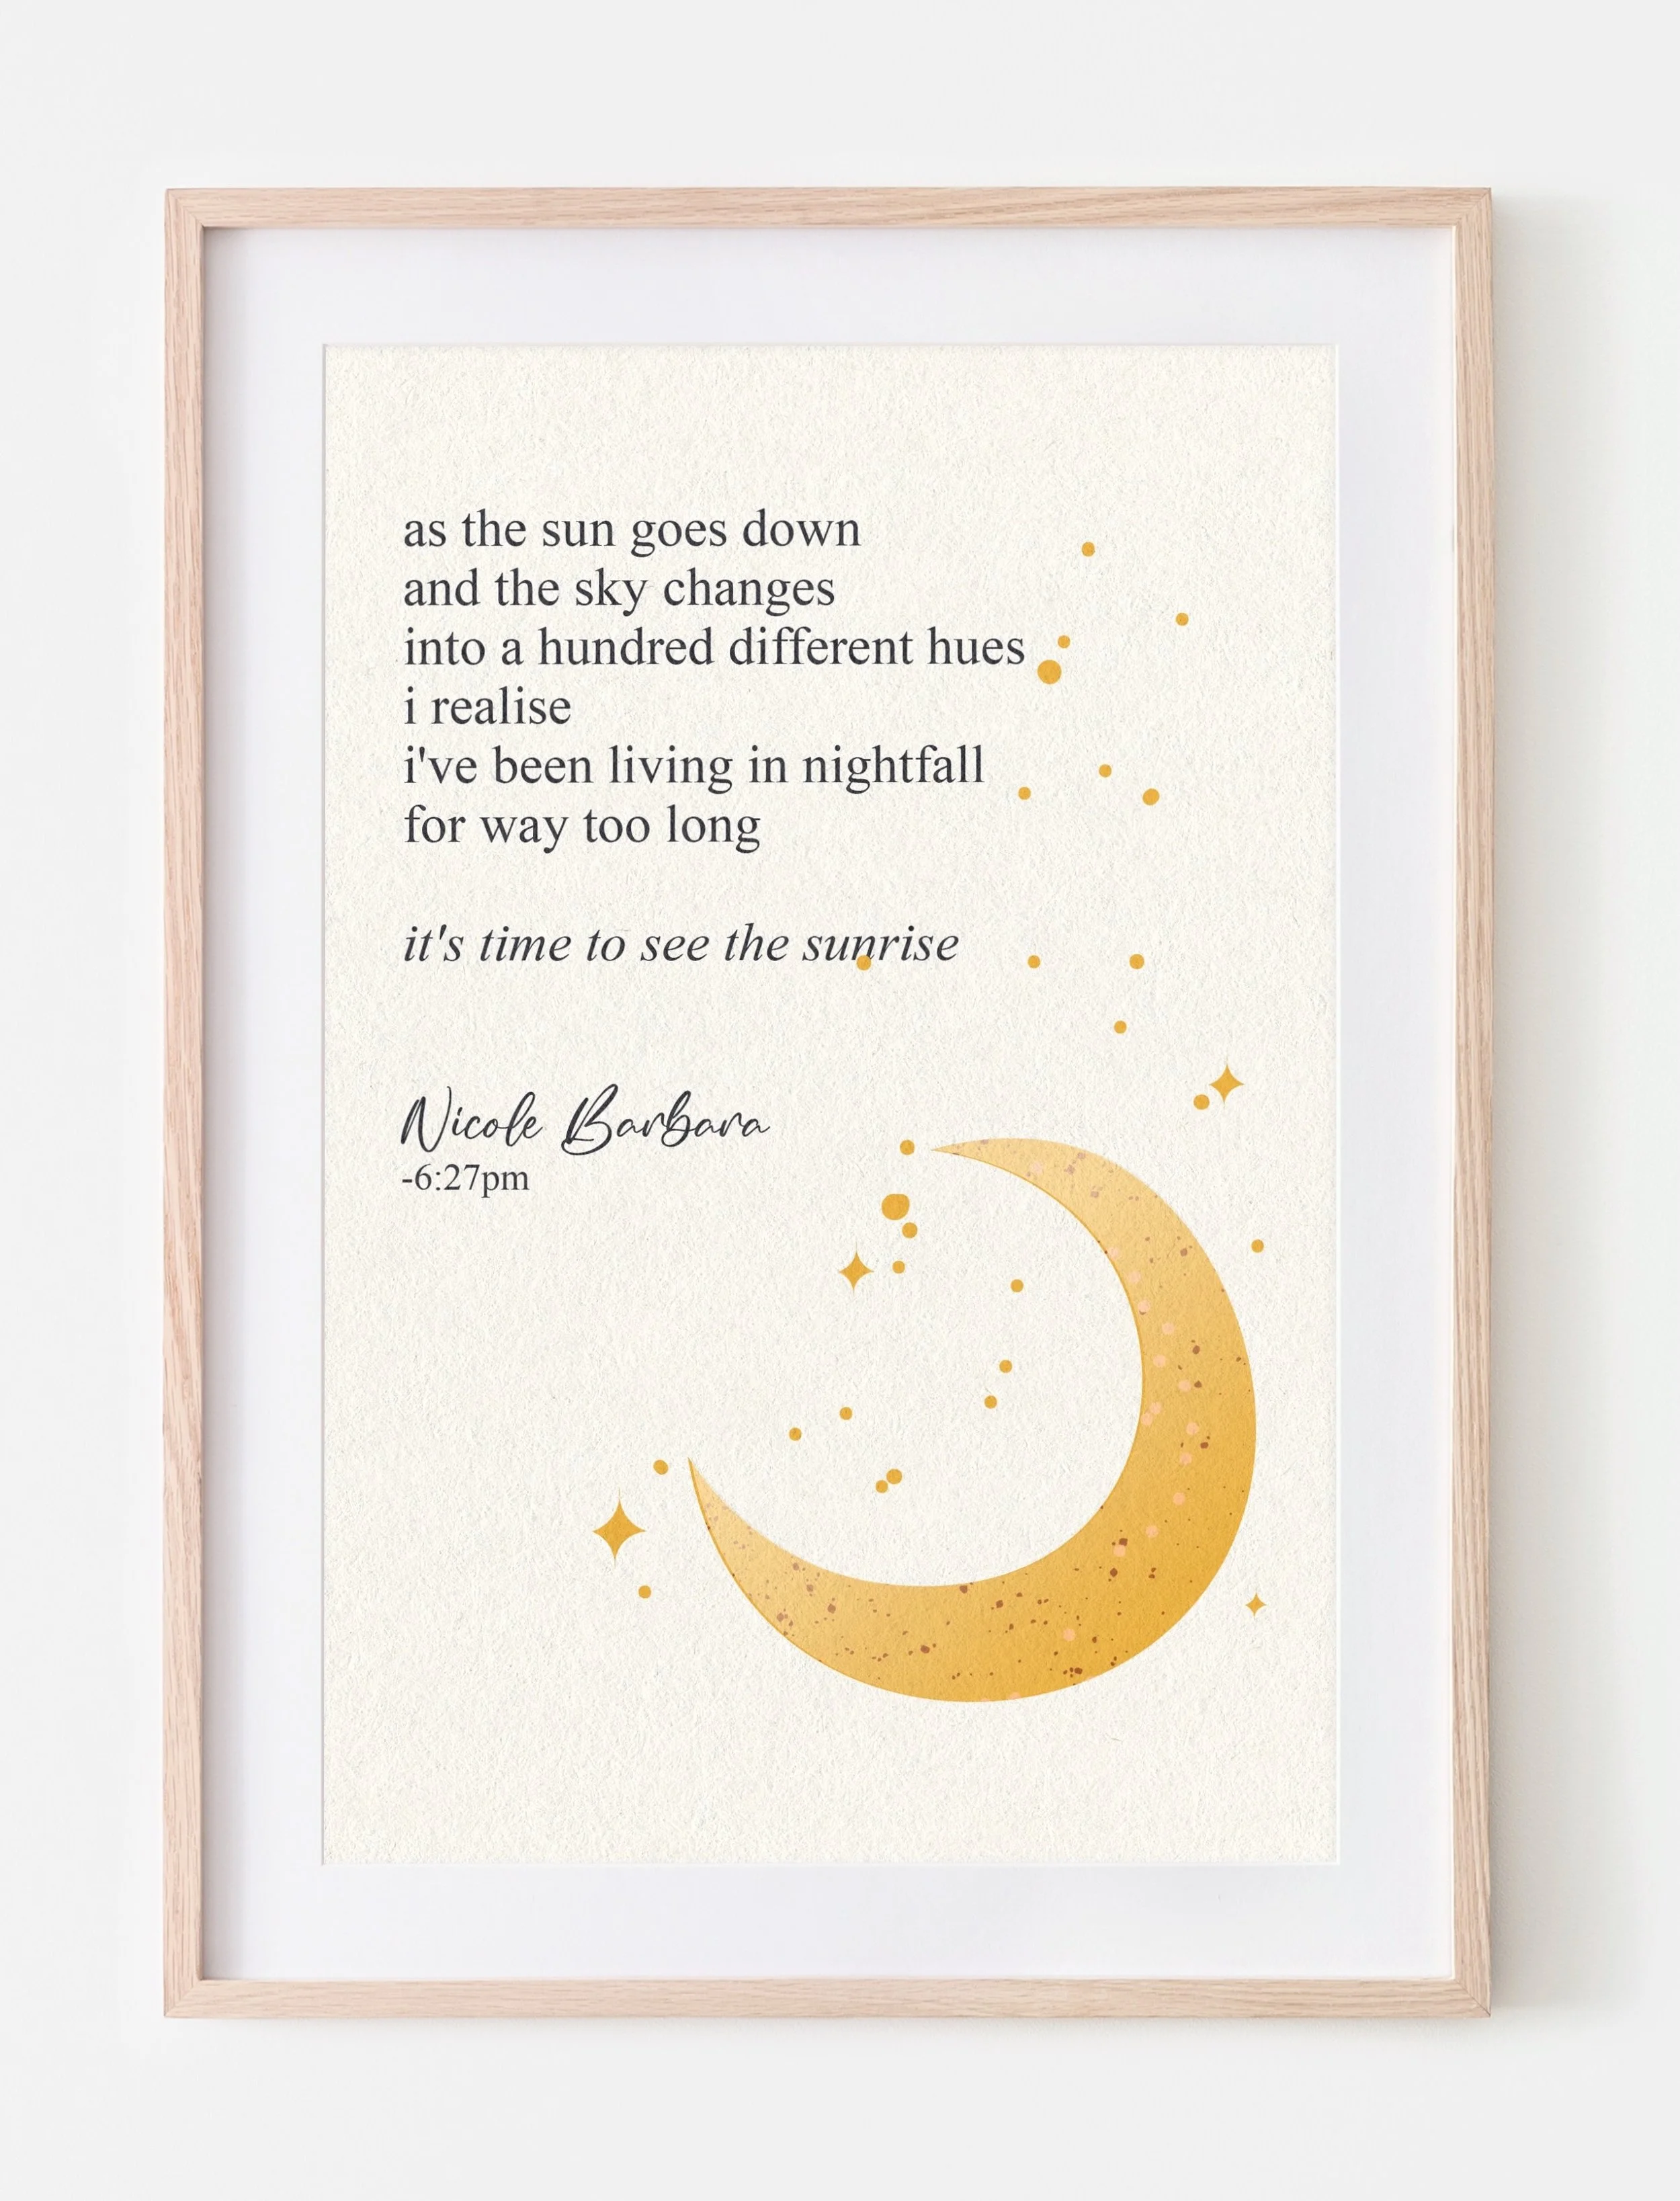 as the sun goes down
and the sky changes
into a hundred different hues
i realise
i've been living in nightfall
for way too long
it's time to see the sunrise
Nicole Barbara
-6:27pm